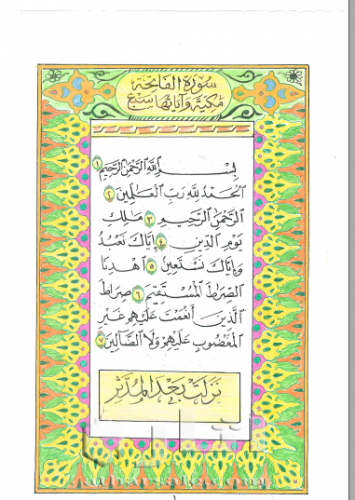 سورة الفاتحة
مكية وآياتها سبع
بسم الله الرحمن الرحيم ١
الحمد لله رب العالمين ٢
الرحمن الرحيم ٣ ملك
يوم الدين ٤ إياك نعبد
وإياك نستعين ٥ اهدنا
الصراط المستقيم ٦ صراط
الذين أنعمت عليهم غير
المغضوب عليهم ولا الضالين ٧
نزلت بعد المدثر
١